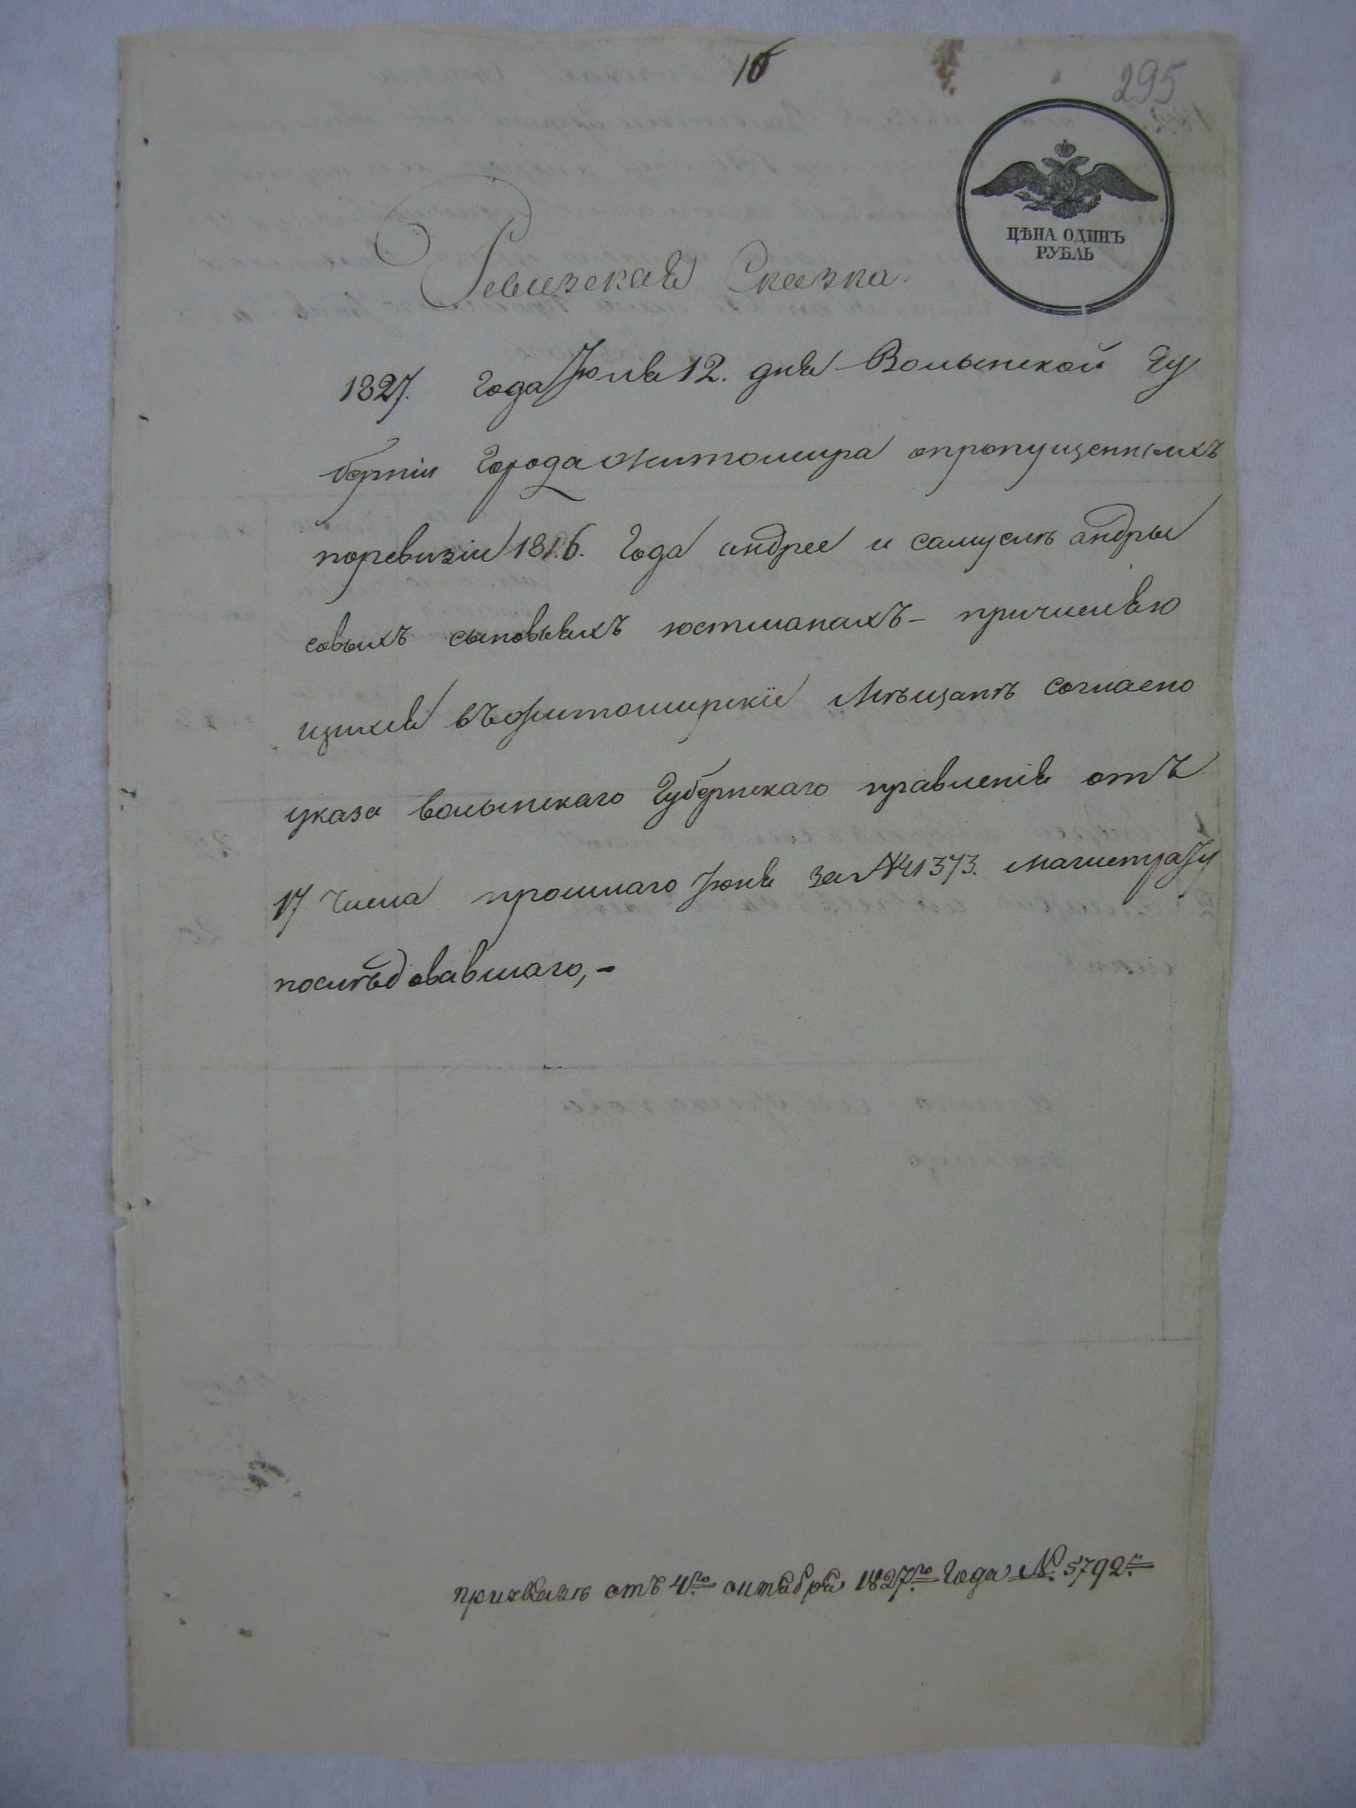 16
295
ЦѢНА ОДИНЪ
РУБЛЬ
Ревизская Сказка.
1827. года Июля 12. дня Волынской Гу
берніи Города Житомира опропущенныхъ
поревизіи 1816. Года андрее и самуелѣ андры
совыхъ сыновьяхъ юстманахъ - причисляю
щихся въ житомирскіе Мѣщанѣ согласно
указа волынскаго Губернскаго правленія отъ
17 числа прошлаго Июня за №41373. магистрату
послѣдовавшаго,-
приказъ отъ 4го октября 1827го Года № 5792й